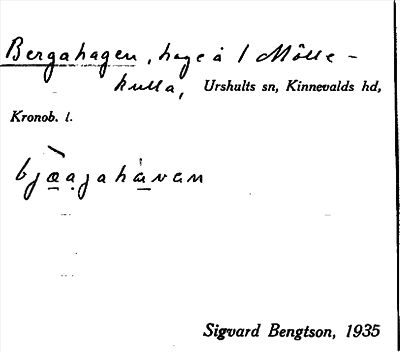 Bergahagen, hage å 1 Mölle-
kulla, Urshults sn, Kinnevalds hd,
Kronob. l.
bjæ̲ạjahà̲van
Sigvard Bengtson, 1935